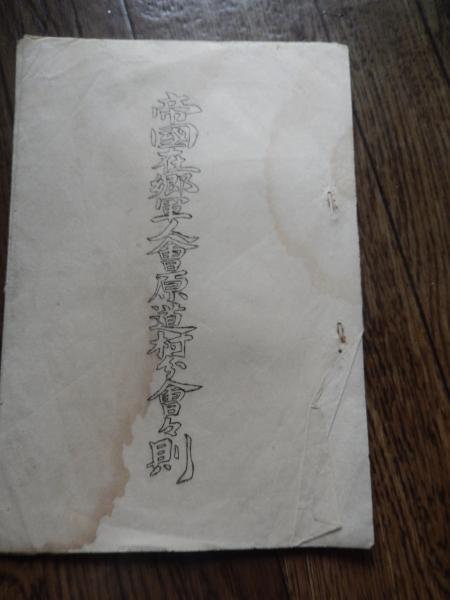 帝國在郷軍人會原道村分會々則